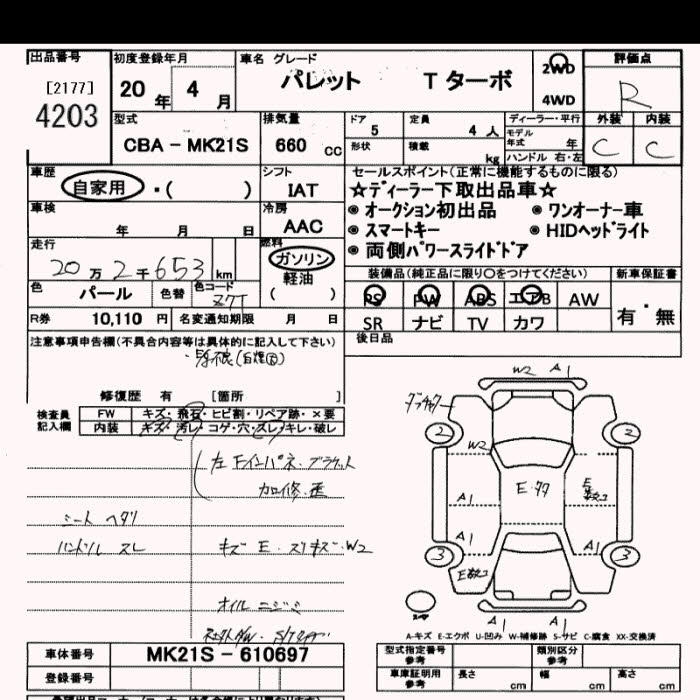 出品番号 初度登録年月 車名 グレード 評価点
[2177] 20 年 4 月 パレット T ターボ 2WD R
4203 4WD
型式 排気量 ドア 定員 ディーラー・平行 外装 内装
CBA - MK21S 660 cc 5 4 人 モデル年式 年 C C
形状 積載 kg ハンドル 右・左
車歴 シフト セールスポイント(正常に機能するものに限る)
自家用・( ) IAT ☆ディーラー下取出品車☆
車検 冷房 ◉オークション初出品 ◉ワンオーナー車
年 月 日 AAC ◉スマートキー ◉HIDヘッドライト
走行 燃料 ◉両側パワースライドドア
20万2千653km ガソリン 装備品(純正品に限り○をつけてください) 新車保証書
軽油
( )
色 パール 色替 色コード Z7T PS PW ABS エアB AW 有・無
R券 10,110 円 名変通知期限 月 日 SR ナビ TV カワ
注意事項申告欄(不具合内容等は具体的に記入して下さい) 後日品
修復歴 有 [箇所 ]
検査員記入欄 FW キズ・飛石・ヒビ割・リペア跡・×要
内装 キズ・汚レ・コゲ・穴・スレ・キレ・破レ
W2 A1
2 2
左Fインパネ・ブラケット
W2
加修・歪 E・タタ
A1
シート ヘタリ
ハンドル スレ キズ E・スリキズ・W2
A1 A1
3 3
オイル ニジミ
A1 A1
A-キズ E-エクボ U-凹み W-補修跡 S-サビ C-腐食 XX-交換済
車体番号 MK21S - 610697 型式指定番号 参考 類別区分 参考
登録番号 車庫証明用 参考 長さ cm 幅 cm 高さ cm